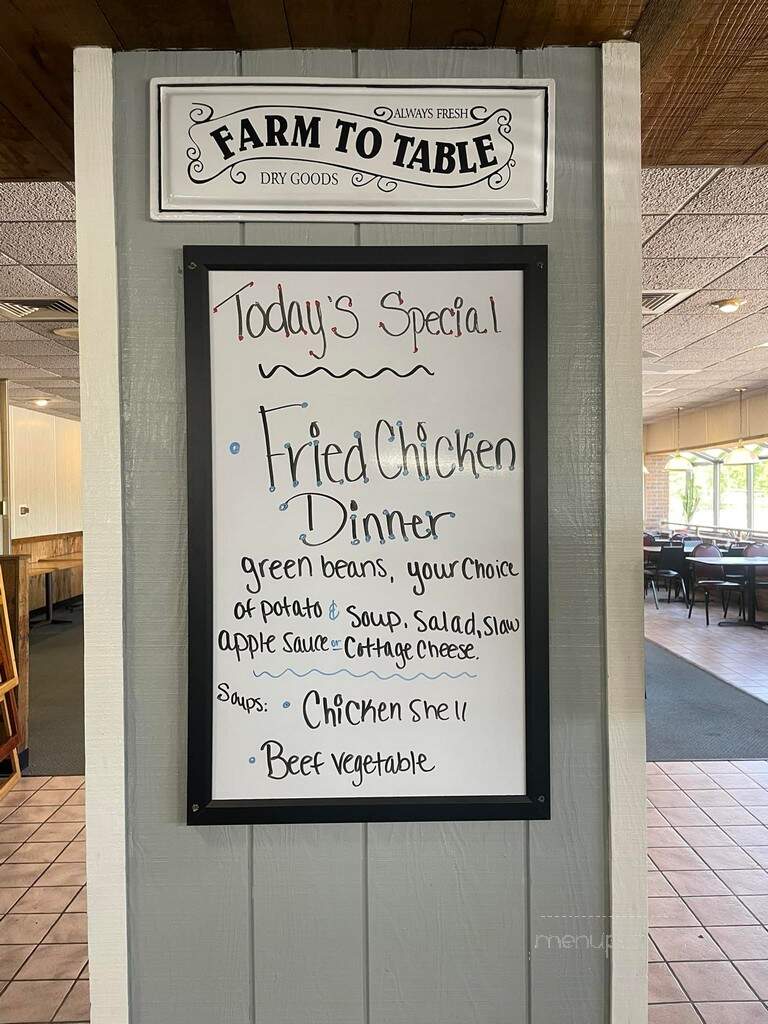 ALWAYS FRESH
FARM TO TABLE
DRY GOODS
Today's Special
• Fried Chicken
Dinner
green beans, your choice
of potato & Soup, Salad, Slaw
apple Sauce or Cottage Cheese.
Soups: • Chicken Shell
• Beef vegetable